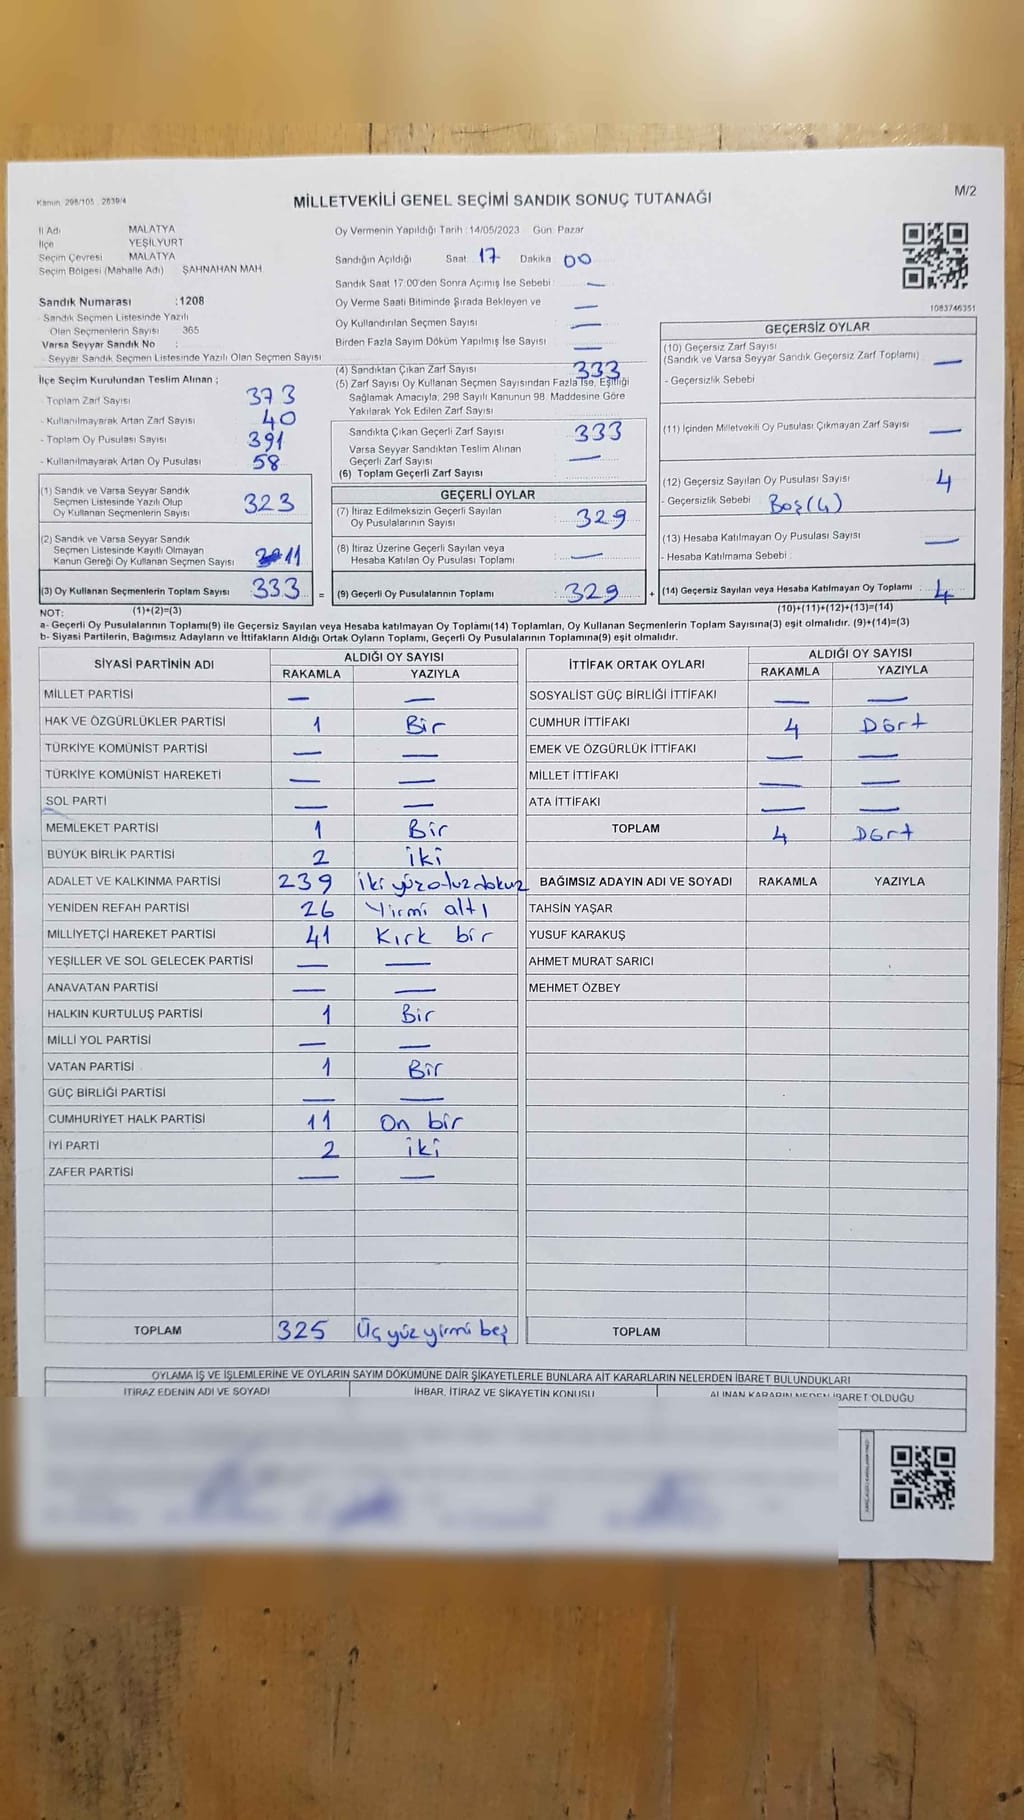 Kanun: 298/105 , 2839/4
MİLLETVEKİLİ GENEL SEÇİMİ SANDIK SONUÇ TUTANAĞI
M/2
İl Adı MALATYA
İlçe YEŞİLYURT
Seçim Çevresi MALATYA
Seçim Bölgesi (Mahalle Adı) ŞAHNAHAN MAH.
Sandık Numarası :1208
- Sandık Seçmen Listesinde Yazılı
Olan Seçmenlerin Sayısı 365
Varsa Seyyar Sandık No :
- Seyyar Sandık Seçmen Listesinde Yazılı Olan Seçmen Sayısı:
İlçe Seçim Kurulundan Teslim Alınan ;
- Toplam Zarf Sayısı 373
- Kullanılmayarak Artan Zarf Sayısı 40
- Toplam Oy Pusulası Sayısı 391
- Kullanılmayarak Artan Oy Pusulası 58
(1) Sandık ve Varsa Seyyar Sandık
Seçmen Listesinde Yazılı Olup
Oy Kullanan Seçmenlerin Sayısı 323
(2) Sandık ve Varsa Seyyar Sandık
Seçmen Listesinde Kayıtlı Olmayan
Kanun Gereği Oy Kullanan Seçmen Sayısı 11
(3) Oy Kullanan Seçmenlerin Toplam Sayısı 333 =
(1)+(2)=(3)
Oy Vermenin Yapıldığı Tarih :14/05/2023 Gün: Pazar
Sandığın Açıldığı Saat 17 Dakika 00
Sandık Saat 17:00'den Sonra Açılmış İse Sebebi : —
Oy Verme Saati Bitiminde Sırada Bekleyen ve —
Oy Kullandırılan Seçmen Sayısı : —
Birden Fazla Sayım Döküm Yapılmış İse Sayısı : —
(4) Sandıktan Çıkan Zarf Sayısı : 333
(5) Zarf Sayısı Oy Kullanan Seçmen Sayısından Fazla İse, Eşitliği
Sağlamak Amacıyla, 298 Sayılı Kanunun 98. Maddesine Göre
Yakılarak Yok Edilen Zarf Sayısı :
Sandıkta Çıkan Geçerli Zarf Sayısı : 333
Varsa Seyyar Sandıktan Teslim Alınan
Geçerli Zarf Sayısı : —
(6) Toplam Geçerli Zarf Sayısı :
GEÇERLİ OYLAR
(7) İtiraz Edilmeksizin Geçerli Sayılan
Oy Pusulalarının Sayısı : 329
(8) İtiraz Üzerine Geçerli Sayılan veya
Hesaba Katılan Oy Pusulası Toplamı : —
(9) Geçerli Oy Pusulalarının Toplamı : 329 +
1083746351
GEÇERSİZ OYLAR
(10) Geçersiz Zarf Sayısı :
(Sandık ve Varsa Seyyar Sandık Geçersiz Zarf Toplamı) —
- Geçersizlik Sebebi :
(11) İçinden Milletvekili Oy Pusulası Çıkmayan Zarf Sayısı : —
(12) Geçersiz Sayılan Oy Pusulası Sayısı : 4
- Geçersizlik Sebebi : Boş(4)
(13) Hesaba Katılmayan Oy Pusulası Sayısı : —
- Hesaba Katılmama Sebebi :
(14) Geçersiz Sayılan veya Hesaba Katılmayan Oy Toplamı : 4
(10)+(11)+(12)+(13)=(14)
NOT:
a- Geçerli Oy Pusulalarının Toplamı(9) ile Geçersiz Sayılan veya Hesaba katılmayan Oy Toplamı(14) Toplamları, Oy Kullanan Seçmenlerin Toplam Sayısına(3) eşit olmalıdır. (9)+(14)=(3)
b- Siyasi Partilerin, Bağımsız Adayların ve İttifakların Aldığı Ortak Oyların Toplamı, Geçerli Oy Pusulalarının Toplamına(9) eşit olmalıdır.
SİYASİ PARTİNİN ADI ALDIĞI OY SAYISI
RAKAMLA YAZIYLA
MİLLET PARTİSİ — —
HAK VE ÖZGÜRLÜKLER PARTİSİ 1 Bir
TÜRKİYE KOMÜNİST PARTİSİ — —
TÜRKİYE KOMÜNİST HAREKETİ — —
SOL PARTİ — —
MEMLEKET PARTİSİ 1 Bir
BÜYÜK BİRLİK PARTİSİ 2 iki
ADALET VE KALKINMA PARTİSİ 239 ikiyüzotuzdokuz
YENİDEN REFAH PARTİSİ 26 Yirmi altı
MİLLİYETÇİ HAREKET PARTİSİ 41 Kırk bir
YEŞİLLER VE SOL GELECEK PARTİSİ — —
ANAVATAN PARTİSİ — —
HALKIN KURTULUŞ PARTİSİ 1 Bir
MİLLİ YOL PARTİSİ — —
VATAN PARTİSİ 1 Bir
GÜÇ BİRLİĞİ PARTİSİ — —
CUMHURİYET HALK PARTİSİ 11 On bir
İYİ PARTİ 2 iki
ZAFER PARTİSİ — —
TOPLAM 325 Üç yüz yirmi beş
İTTİFAK ORTAK OYLARI ALDIĞI OY SAYISI
RAKAMLA YAZIYLA
SOSYALİST GÜÇ BİRLİĞİ İTTİFAKI — —
CUMHUR İTTİFAKI 4 Dört
EMEK VE ÖZGÜRLÜK İTTİFAKI — —
MİLLET İTTİFAKI — —
ATA İTTİFAKI — —
TOPLAM 4 Dört
BAĞIMSIZ ADAYIN ADI VE SOYADI RAKAMLA YAZIYLA
TAHSİN YAŞAR
YUSUF KARAKUŞ
AHMET MURAT SARICI
MEHMET ÖZBEY
TOPLAM
OYLAMA İŞ VE İŞLEMLERİNE VE OYLARIN SAYIM DÖKÜMÜNE DAİR ŞİKAYETLERLE BUNLARA AİT KARARLARIN NELERDEN İBARET BULUNDUKLARI
İTİRAZ EDENİN ADI VE SOYADI İHBAR, İTİRAZ VE ŞİKAYETİN KONUSU ALINAN KARARIN NEDEN İBARET OLDUĞU